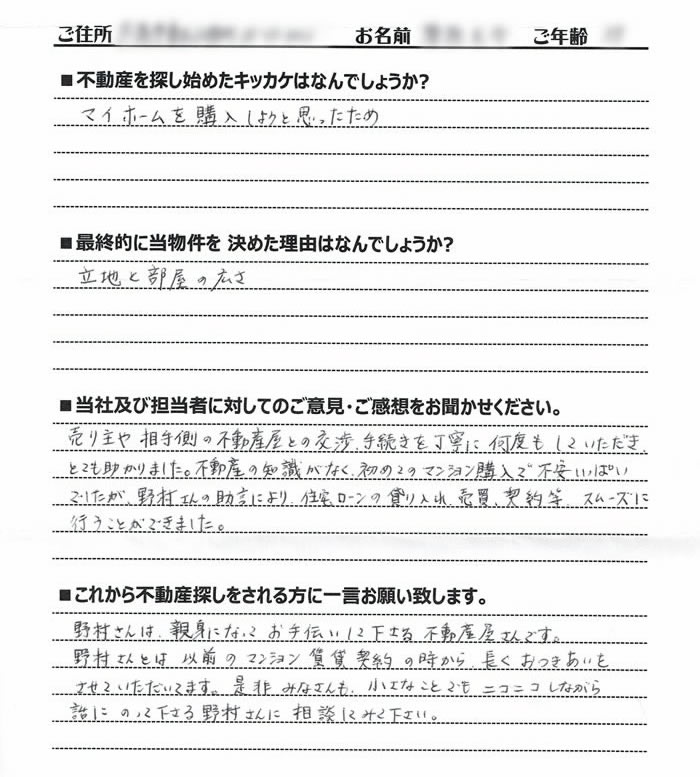 ご住所 お名前 ご年齢
■不動産を探し始めたキッカケはなんでしょうか?
マイホームを購入しようと思ったため
■最終的に当物件を 決めた理由はなんでしょうか?
立地と部屋の広さ
■当社及び担当者に対してのご意見・ご感想をお聞かせください。
売り主や相手側の不動産屋との交渉、手続きを丁寧に何度もしていただき、
とても助かりました。不動産の知識がなく、初めてのマンション購入で不安いっぱい
でしたが、野村さんの助言により、住宅ローンの借り入れ、売買、契約等、スムーズに
行うことができました。
■これから不動産探しをされる方に一言お願い致します。
野村さんは、親身になってお手伝いして下さる不動産屋さんです。
野村さんとは以前のマンション賃貸契約の時から、長くおつきあいを
させていただいてます。是非みなさんも、小さなことでもニコニコしながら
話にのって下さる野村さんに相談してみて下さい。